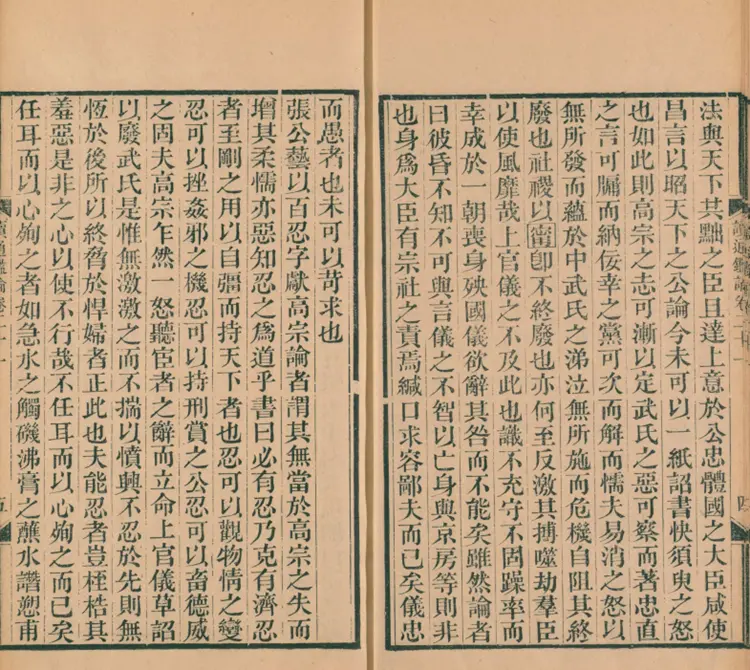 法與天下共黜之臣且達上意於公忠體國之大臣咸使
昌言以昭天下之公論今未可以一紙詔書快須臾之怒
也如此則高宗之志可漸以定武氏之惡可察而著忠直
之言可牖而納佞幸之黨可次而解而懦夫易消之怒以
無所發而蘊於中武氏之涕泣無所施而危機自阻其終
廢也社稷以甯卽不終廢也亦何至反激其搏噬劫羣臣
以使風靡哉上官儀之不及此也識不充守不固躁率而
幸成於一朝喪身殃國儀欲辭其咎而不能矣雖然論者
曰彼昏不知不可與言儀之不智以亡身與京房等則非
也身爲大臣有宗社之責焉緘口求容鄙夫而已矣儀忠
而愚者也未可以苛求也
張公藝以百忍字獻高宗論者謂其無當於高宗之失而
增其柔懦亦惡知忍之爲道乎書曰必有忍乃克有濟忍
者至剛之用以自彊而持天下者也忍可以觀物情之變
忍可以挫姦邪之機忍可以持刑賞之公忍可以畜德威
之固夫高宗乍然一怒聽宦者之辭而立命上官儀草詔
以廢武氏是惟無激激之而不揣以憤興不忍於先則無
恆於後所以終脅於悍婦者正此也夫能忍者豈桎梏其
羞惡是非之心以使不行哉不任耳而以心殉之而已矣
任耳而以心殉之者如急水之觸磯沸膏之蘸水譖愬甫